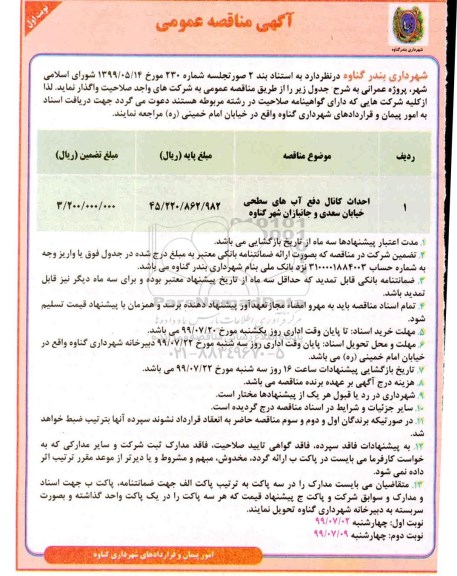 نوبت اول
آگهی مناقصه عمومی
شهرداری بندر گناوه
شهرداری بندر گناوه درنظردارد به استناد بند ۲ صورتجلسه شماره ۲۳۰ مورخ ۱۳۹۹/۰۵/۱۴ شورای اسلامی
شهر، پروژه عمرانی به شرح جدول زیر را از طریق مناقصه عمومی به شرکت های واجد صلاحیت واگذار نماید. لذا
از کلیه شرکت هایی که دارای گواهینامه صلاحیت در رشته مربوطه هستند دعوت می گردد جهت دریافت اسناد
به امور پیمان و قراردادهای شهرداری گناوه واقع در خیابان امام خمینی (ره) مراجعه نمایند.
ردیف موضوع مناقصه مبلغ پایه (ریال) مبلغ تضمین (ریال)
۱ احداث کانال دفع آب های سطحی خیابان سعدی و جانبازان شهر گناوه ۴۵/۲۲۰/۸۶۲/۹۸۲ ۳/۲۰۰/۰۰۰/۰۰۰
۱. مدت اعتبار پیشنهادها سه ماه از تاریخ بازگشایی می باشد.
۲. تضمین شرکت در مناقصه که بصورت ارائه ضمانتنامه بانکی معتبر به مبلغ درج شده در جدول فوق یا واریز وجه
به شماره حساب ۳۱۰۰۰۰۱۸۸۴۰۰۳ نزد بانک ملی بنام شهرداری بندر گناوه می باشد.
۳. ضمانتنامه بانکی قابل تمدید که حداقل سه ماه از تاریخ پیشنهاد معتبر بوده و برای سه ماه دیگر نیز قابل
تمدید باشد.
۴. تمام اسناد مناقصه باید به مهر و امضاء مجاز تعهدآور پیشنهاد دهنده برسد و همزمان با پیشنهاد قیمت تسلیم
شود.
۵. مهلت خرید اسناد: تا پایان وقت اداری روز یکشنبه مورخ ۹۹/۰۷/۲۰ می باشد.
۶. مهلت و محل تحویل اسناد: پایان وقت اداری روز سه شنبه مورخ ۹۹/۰۷/۲۲ دبیرخانه شهرداری گناوه واقع در
خیابان امام خمینی (ره) می باشد.
۷. تاریخ بازگشایی پیشنهادات ساعت ۱۶ روز سه شنبه مورخ ۹۹/۰۷/۲۲ می باشد.
۸. هزینه درج آگهی بر عهده برنده مناقصه می باشد.
۹. شهرداری در رد یا قبول هر یک از پیشنهادها مختار است.
۱۰. سایر جزئیات و شرایط در اسناد مناقصه درج گردیده است.
۱۱. در صورتیکه برندگان اول و دوم و سوم مناقصه حاضر به انعقاد قرارداد نشوند سپرده آنها بترتیب ضبط خواهد
شد.
۱۲. به پیشنهادات فاقد سپرده، فاقد گواهی تایید صلاحیت، فاقد مدارک ثبت شرکت و سایر مدارکی که به
خواست کارفرما می بایست در پاکت ب ارائه گردد، مخدوش، مبهم و مشروط و یا دیرتر از موعد مقرر ترتیب اثر
داده نمی شود.
۱۳. متقاضیان می بایست مدارک را در سه پاکت به ترتیب پاکت الف جهت ضمانتنامه، پاکت ب جهت اسناد
و مدارک و سوابق شرکت و پاکت ج پیشنهاد قیمت که هر سه پاکت را در یک پاکت واحد گذاشته و بصورت
سربسته به دبیرخانه شهرداری گناوه تحویل نمایند.
نوبت اول: چهارشنبه ۹۹/۰۷/۰۲
نوبت دوم: چهارشنبه ۹۹/۰۷/۰۹
امور پیمان و قراردادهای شهرداری گناوه
۰۲۱-۸۸۳۴۹۶۷۰-۵